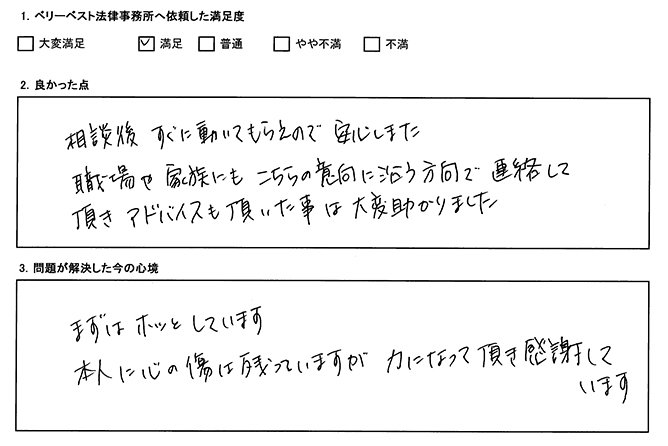 1. ベリーベスト法律事務所へ依頼した満足度
□ 大変満足 ☑ 満足 □ 普通 □ やや不満 □ 不満
2. 良かった点
相談後 すぐに動いてもらえので 安心しまた
職場や家族にも こちらの意向に沿う方向で 連絡して
頂き アドバイスも頂いた事は 大変助かりました
3. 問題が解決した今の心境
まずは ホッと しています
本人に心の傷は残っていますが 力になって頂き感謝して
います